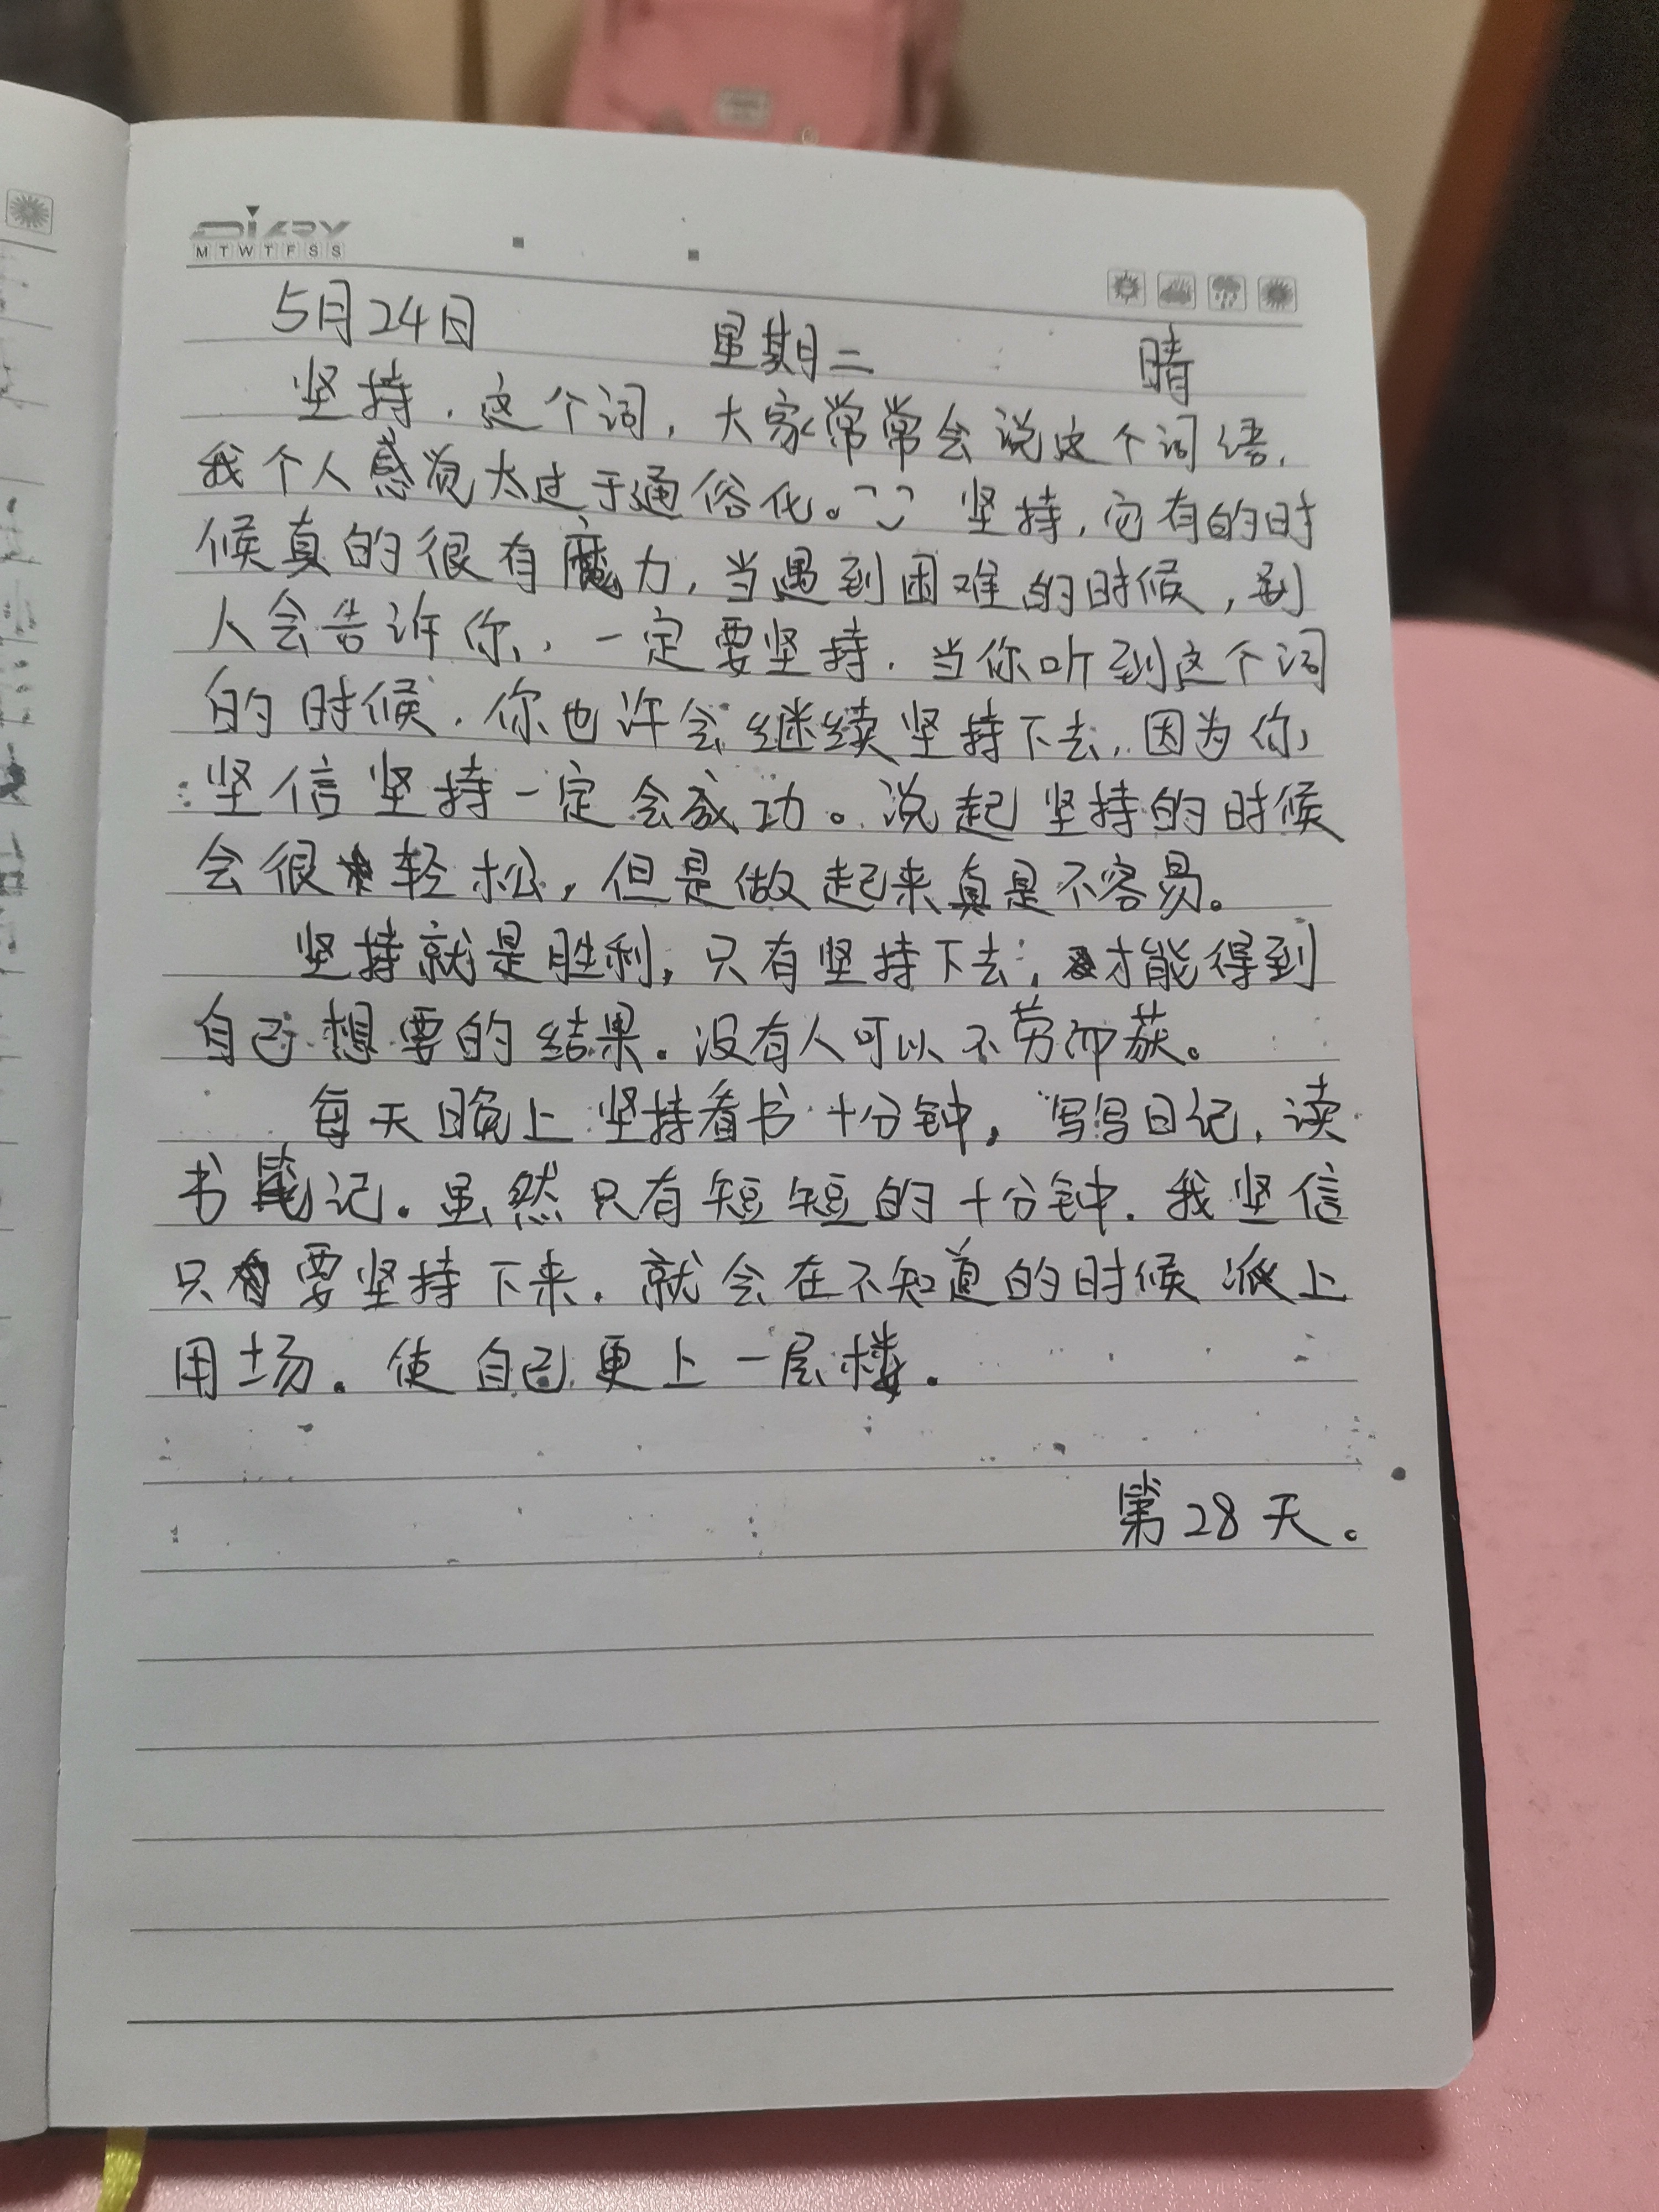 DIARY
M T W T F S S
5月24日 星期二 晴
坚持，这个词，大家常常会说这个词语，
我个人感觉太过于通俗化。坚持，它有的时
候真的很有魔力，当遇到困难的时候，别
人会告诉你，一定要坚持，当你听到这个词
的时候，你也许会继续坚持下去，因为你
坚信坚持一定会成功。说起坚持的时候
会很轻松，但是做起来真是不容易。
坚持就是胜利，只有坚持下去，才能得到
自己想要的结果。没有人可以不劳而获。
每天晚上坚持看书十分钟，写写日记，读
书笔记。虽然只有短短的十分钟，我坚信
只要坚持下来，就会在不知道的时候派上
用场。使自己更上一层楼。
第28天。